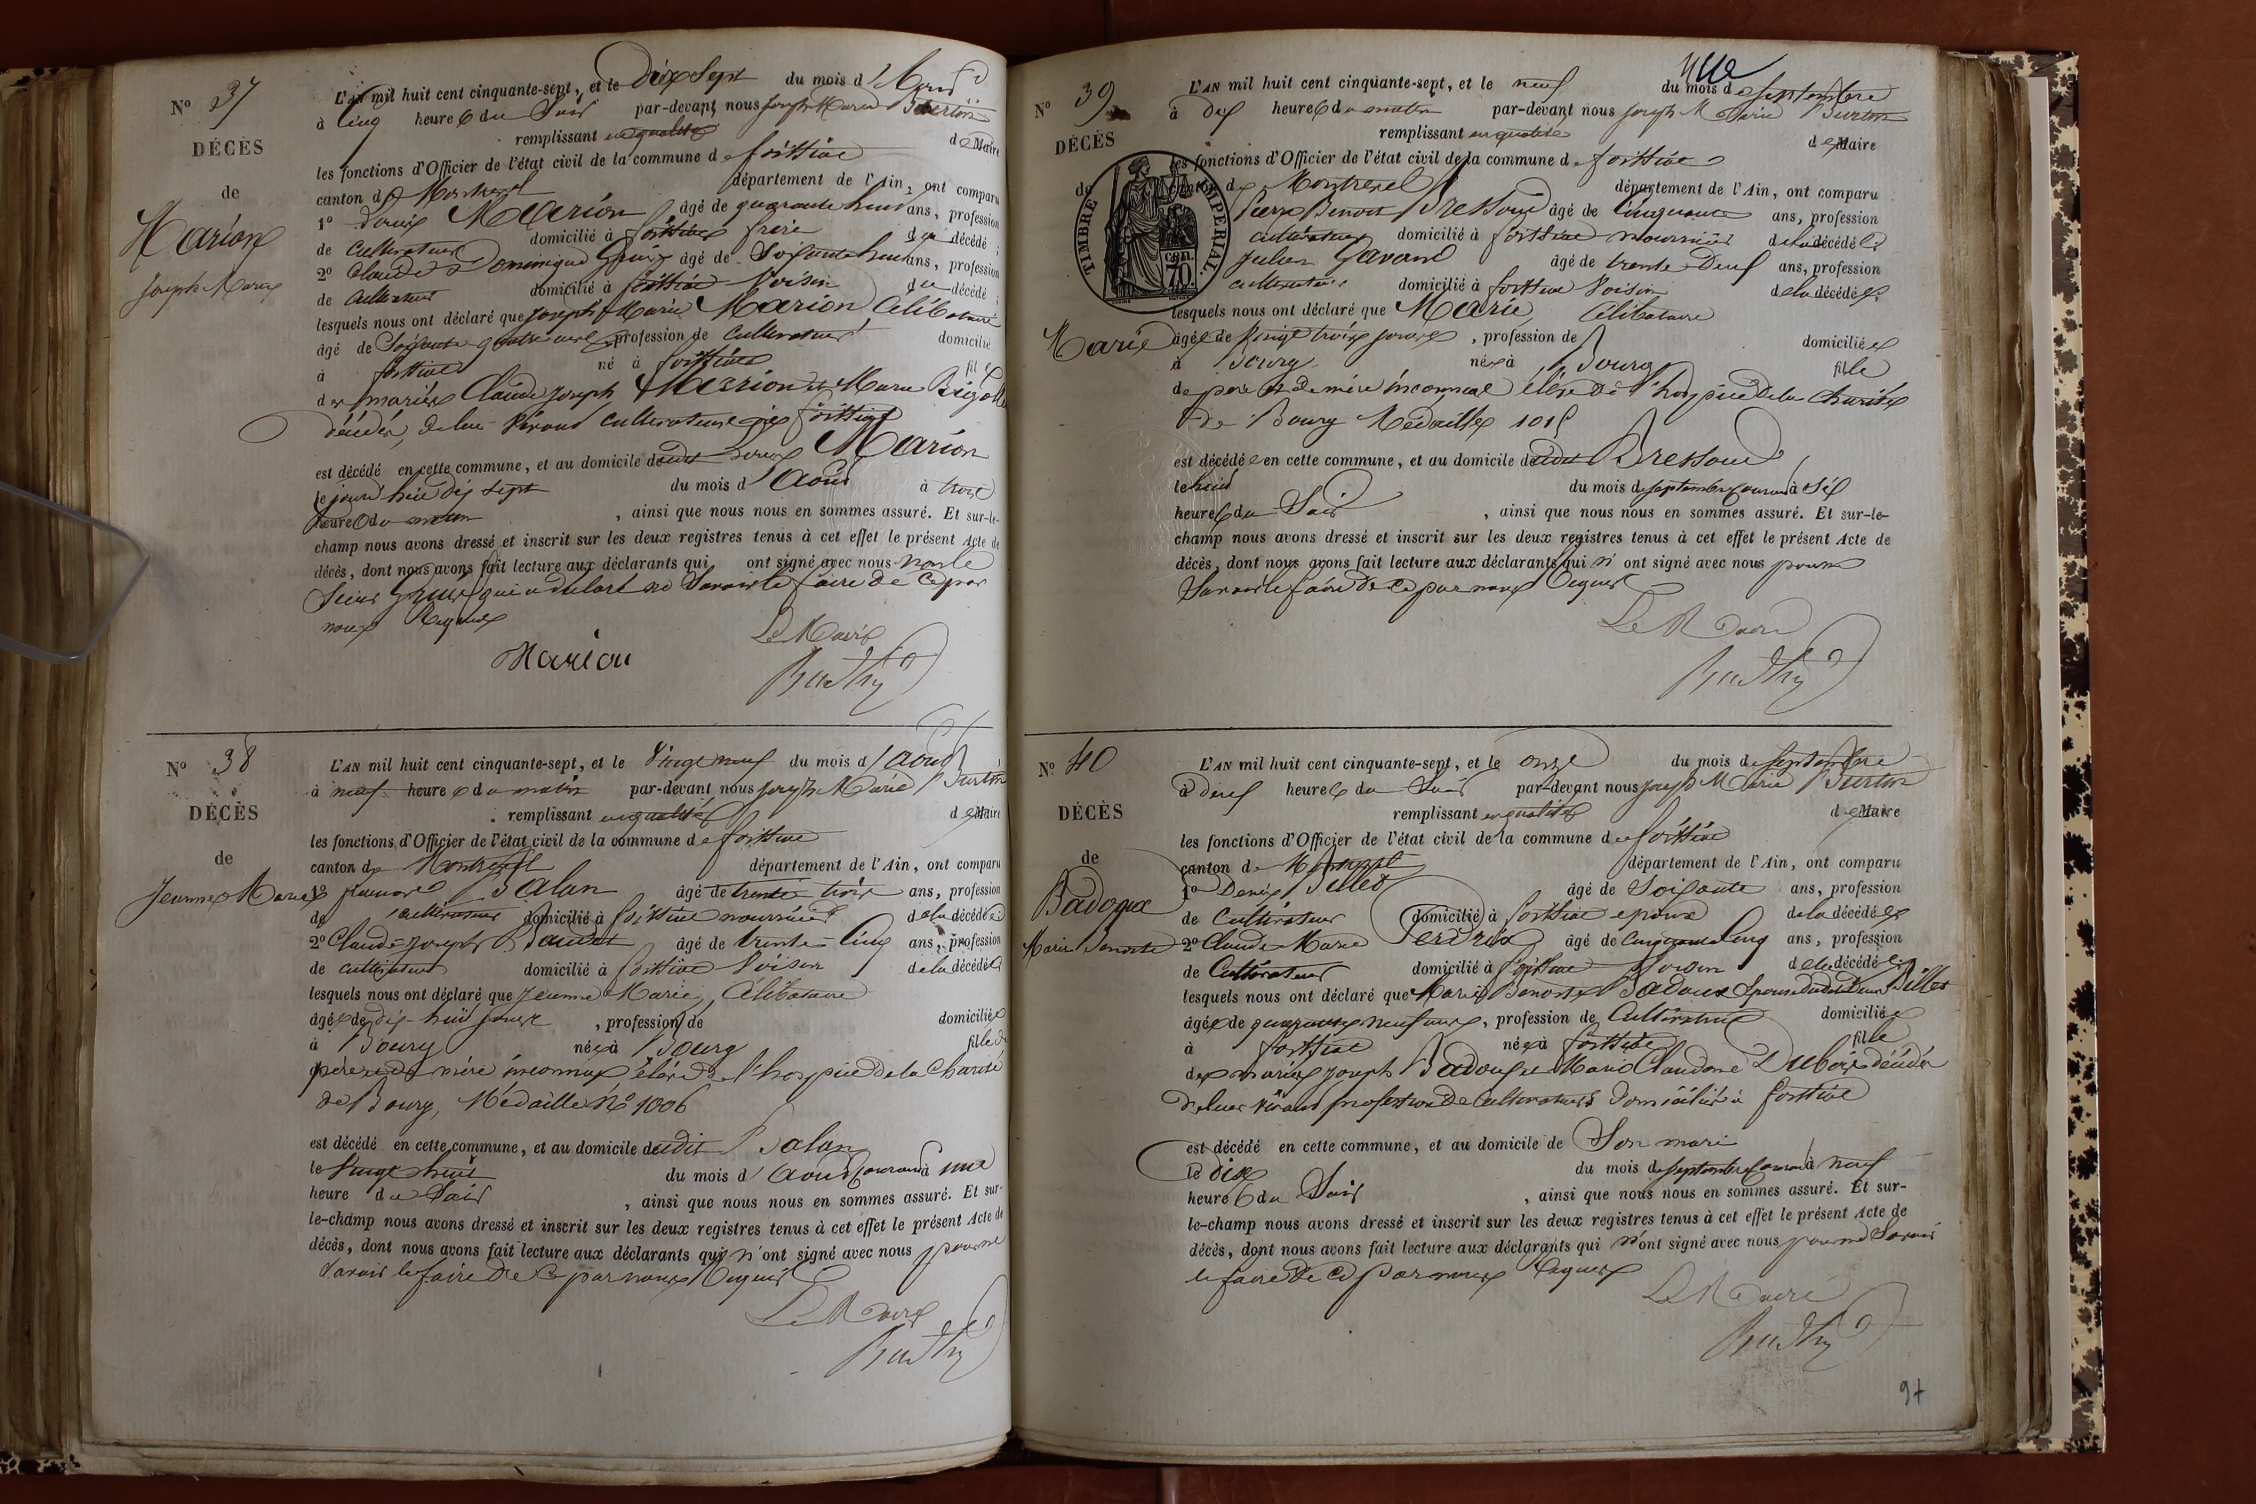 N° 37
DÉCÈS
de
Marion
Joseph Marie
L'AN mil huit cent cinquante-sept, et le Dix Sept du mois d'Aout
à Cinq heures du Soir par-devant nous Joseph Marie
remplissant en qualité de Maire
les fonctions d'Officier de l'état civil de la commune de foissiat
canton de Montrevel département de l'Ain, ont comparu
1° Denis Marion âgé de quarante huit ans, profession
de Cultivateur domicilié à foissiat frère du décédé ;
2° Claude Dominique âgé de Soixante huit ans, profession
de Cultivateur domicilié à foissiat Voisin du décédé ;
lesquels nous ont déclaré que Joseph Marie Marion Célibataire
âgé de Soixante quatre ans profession de Cultivateur domicilié
à foissiat né à foissiat fils
des mariés Claude Joseph Marion et Marie
décédés, de leur vivant Cultivateurs à foissiat
est décédé en cette commune, et au domicile dudit Denis Marion
le jourd'hui dix sept du mois d'Aout à trois
heures du matin , ainsi que nous nous en sommes assuré. Et sur-le-
champ nous avons dressé et inscrit sur les deux registres tenus à cet effet le présent Acte de
décès, dont nous avons fait lecture aux déclarants qui ont signé avec nous non le
Sieur que a déclaré ne Savoir le faire de Ce par
nous Requis
Le Maire
Marion
N° 38
DÉCÈS
de
Jeanne Marie
L'AN mil huit cent cinquante-sept, et le Vingt neuf du mois d'aout
à neuf heures du matin par-devant nous Joseph Marie
remplissant en qualité de Maire
les fonctions d'Officier de l'état civil de la commune de foissiat
canton de Montrevel département de l'Ain, ont comparu
1° Balan âgé de trente trois ans, profession
de Cultivateur domicilié à foissiat nourricier de la décédée
2° Claude Joseph âgé de trente-Cinq ans, profession
de cultivateur domicilié à foissiat Voisin de la décédée
lesquels nous ont déclaré que Jeanne Marie, Célibataire
âgée de dix-huit jours , profession de domiciliée
à Bourg née à Bourg fille de
père et de mère inconnus élève de l'hospice de la Charité
de Bourg, Médaille N° 1006
est décédé en cette commune, et au domicile dudit Balan
le Vingt huit du mois d'Aout Courant à une
heure du Soir , ainsi que nous nous en sommes assuré. Et sur-
le-champ nous avons dressé et inscrit sur les deux registres tenus à cet effet le présent Acte de
décès, dont nous avons fait lecture aux déclarants qui n'ont signé avec nous pour ne
Savoir le faire de Ce par nous Requis
Le Maire
N° 39
DÉCÈS
de
Marie
TIMBRE IMPERIAL
70 cen.
L'AN mil huit cent cinquante-sept, et le neuf du mois de Septembre
à dix heures du matin par-devant nous Joseph Marie
remplissant en qualité de Maire
les fonctions d'Officier de l'état civil de la commune de foissiat
canton de Montrevel département de l'Ain, ont comparu
Pierre Benoit Bressoud âgé de Cinquante ans, profession
cultivateur domicilié à foissiat nourricier de la décédée
Julien Gavand âgé de trente-Deux ans, profession
cultivateur domicilié à foissiat Voisin de la décédée
lesquels nous ont déclaré que Marie, Célibataire
âgée de Vingt trois jours , profession de domiciliée
à Bourg née à Bourg fille
de père et de mère inconnus élève de l'hospice de la Charité
de Bourg Médaille 1015
est décédée en cette commune, et au domicile dudit Bressoud
le huit du mois de Septembre Courant à Six
heures du Soir , ainsi que nous nous en sommes assuré. Et sur-le-
champ nous avons dressé et inscrit sur les deux registres tenus à cet effet le présent Acte de
décès, dont nous avons fait lecture aux déclarants qui n'ont signé avec nous pour ne
Savoir le faire de ce par nous Requis
Le Maire
N° 40
DÉCÈS
de
Badoux
Marie Benoite
L'AN mil huit cent cinquante-sept, et le onze du mois de Septembre
à deux heures du Soir par-devant nous Joseph Marie
remplissant en qualité de Maire
les fonctions d'Officier de l'état civil de la commune de foissiat
canton de Montrevel département de l'Ain, ont comparu
1° Denis Billet âgé de Soixante ans, profession
de Cultivateur domicilié à foissiat époux de la décédée
2° Claude Marie Perdrix âgé de Cinquante Cinq ans, profession
de Cultivateur domicilié à foissiat Voisin de la décédée
lesquels nous ont déclaré que Marie Benoite Badoux Epouse dudit Denis Billet
âgée de quarante neuf ans, profession de Cultivatrice domiciliée
à foissiat née à foissiat fille
des mariés Joseph Badoux et Marie Claudine Dubois décédés
de leur vivant profession de Cultivateurs domiciliés à foissiat
est décédé en cette commune, et au domicile de Son mari
le dix du mois de Septembre Courant à neuf
heures du Soir , ainsi que nous nous en sommes assuré. Et sur-
le-champ nous avons dressé et inscrit sur les deux registres tenus à cet effet le présent Acte de
décès, dont nous avons fait lecture aux déclarants qui n'ont signé avec nous pour ne Savoir
le faire de Ce par nous Requis
Le Maire
97